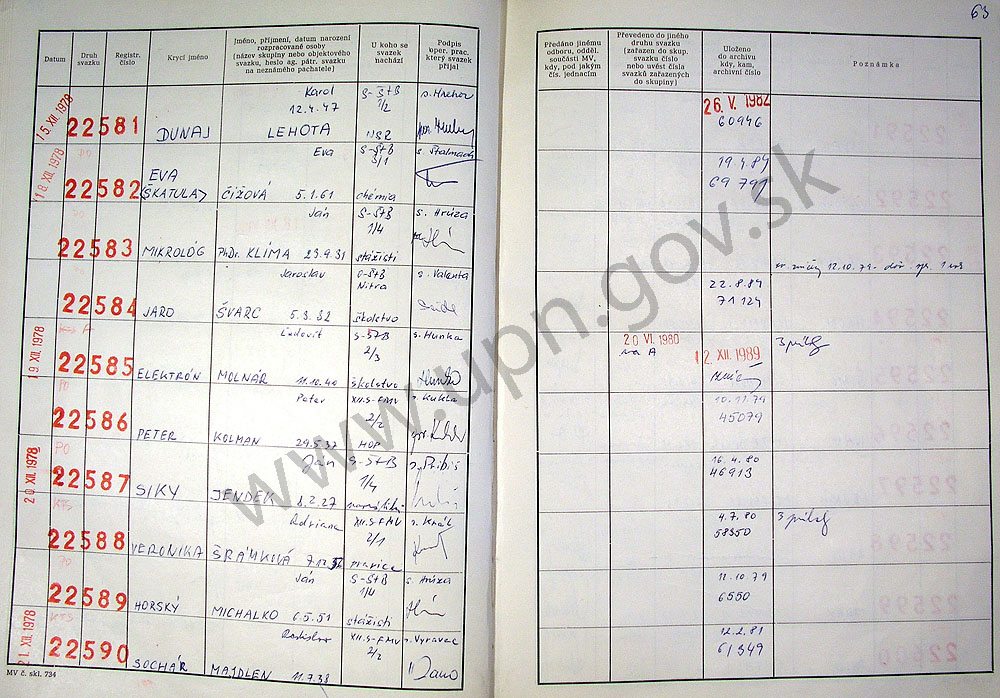 63
Datum
Druh svazku
Registr. číslo
Krycí jméno
Jméno, příjmení, datum narození
rozpracované osoby
(název skupiny nebo objektového
svazku, heslo ag. pátr. svazku
na neznámého pachatele)
U koho se
svazek
nachází
Podpis
oper. prac.
který svazek
přijal
Předáno jinému
odboru, odděl.
součásti MV,
kdy, pod jakým
čís. jednacím
Převedeno do jiného
druhu svazku
(zařazen do skup.
svazku číslo
nebo uvést čísla
svazků zařazených
do skupiny)
Uloženo
do archivu
kdy, kam,
archivní číslo
Poznámka
15 XII. 1978 22581 DUNAJ Karol LEHOTA 12.4.47 S-ŠtB 1/2 26. V. 1982 60946
18 XII. 1978 PO 22582 EVA (ŠKATULA) Eva ČÍŽOVÁ 5.1.61 S-ŠtB 3/1 chémia 19.4.84 69791
PO 22583 MIKROLÓG Ján PhDr. KLÍMA 23.9.31 S-ŠtB 1/4 stážisti s. Hrúza
22584 JARO Jaroslav ŠVARC 5.3.32 O-ŠtB Nitra školstvo s. Valenta 22.8.84 71124
19 XII. 1978 A 22585 ELEKTRÓN Ľudovít MOLNÁR 11.10.40 S-ŠTB 2/3 školstvo s. Hunka 20 VI. 1980 na A 12. XII. 1989 3 príl.
PO 22586 PETER Peter KOLMAN 29.5.32 XII.S-FMV 2/2 HOP s. Kukla 10.11.79 45079
20 XII. 1978 PO 22587 SIKY Ján JENDEK 8.2.27 S-ŠTB 1/4 16.4.80 46913
KTS 22588 VERONIKA Adriana ŠRÁMKOVÁ XII.S-FMV 2/1 pravice s. Král 4.7.80 58350 3 príl.
PO 22589 HORSKÝ Ján MICHALKO 6.5.51 S-ŠtB 1/4 stážisti s. Hrúza 11.10.79 6550
21. XII. 1978 KTS 22590 SOCHÁR Rastislav MAJDLEN 11.7.38 XII.S-FMV 2/2 s. Vyravec 12.2.81 61349
MV č. skl. 734
www.upn.gov.sk